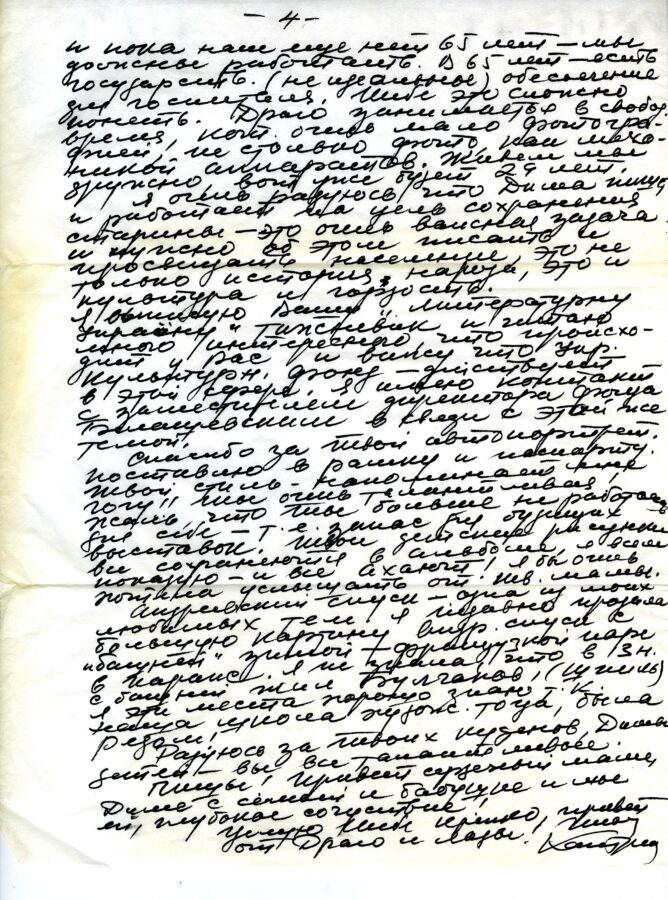 - 4 -
и пока нам еще нет 65 лет – мы
должны работать. В 65 лет – есть
государств. (не идеальное) обеспечение
для госпиталя. Тебе это сложно
понять. Драго занимается в свобод.
время, кот. очень мало фотогра-
фией, не столько фото как меха-
никой аппаратов. Живем мы
дружно вот уже будет 24 лет.
Я очень радуюсь что Дима пишет
и работает на цель сохранения
старины – это очень важная задача
и нужно об этом писать и
просвещать население, это не
только история народа, это и
культура и гордость.
Я выписую Вашу "Литературну
Україну" тижневик и читаю
много интересного что происхо-
дит у Вас и вижу что Укр.
культурн. фонд – действует
в этой сфере. Я имею контакт
с заместителем директора фонда
в связи с этой же
темой.
Спасибо за твой автопортрет.
поставлю в рамку и паспарту.
Твой стиль – напоминает мне
гогу!! ты очень талантливая,
жаль, что ты больше не работаешь
для себя – т.е. запас для будущих
выставок. Твои детские рисунки
все сохраняются в альбоме, я всем
показую – и все ахают! Я бы очень
хотела услышать от тебя. мамы.
Андреевский спуск – одна из моих
любимых тем и я недавно продала
большую картину Андр. спуск с
"башней" зимой – французской паре
в Париже. Я не знала, что в Зн.
с башней жил Булгаков, (Шпиль)
Я эти места хорошо знаю т.к.
наша школа худож. тогда, была
рядом!
Радуюсь за твоих кузенов, Димы
детей – вы все талантливые.
Пиши! привет сердечный маме,
Диме с семьей и бабушке и мое
ей, глубокое сочувствие!
Целую тебя крепко, привет
от Драго и Лады!